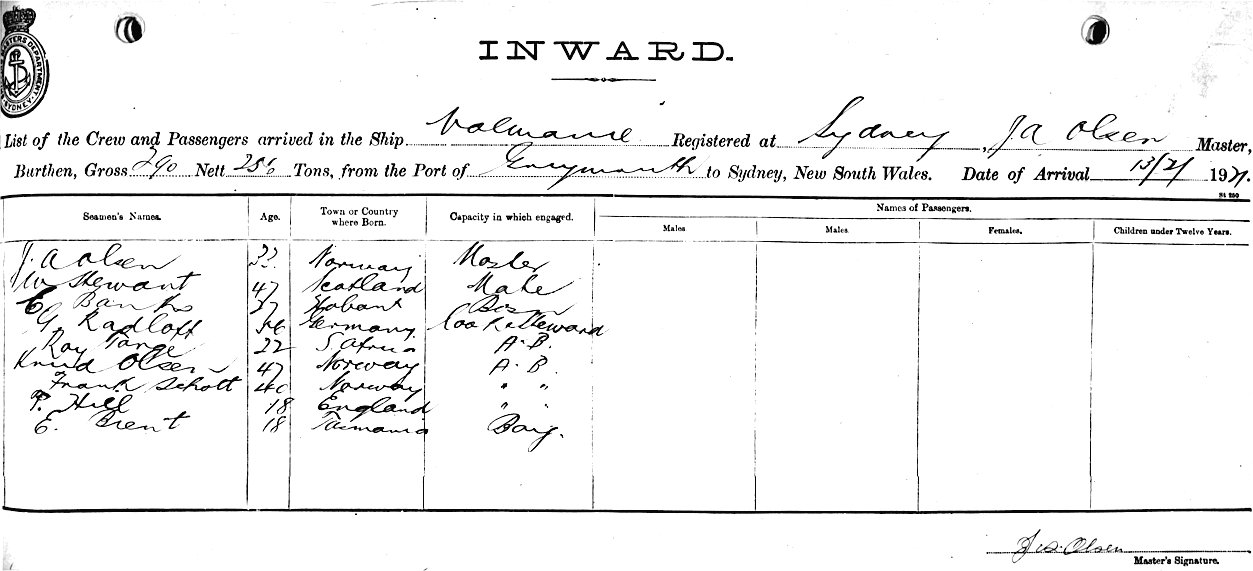 MASTERS DEPARTMENT
SYDNEY
INWARD.
List of the Crew and Passengers arrived in the Ship Valmarie Registered at Sydney, J A Olsen Master,
Burthen, Gross 290 Nett 256 Tons, from the Port of Greymouth to Sydney, New South Wales. Date of Arrival 13/2/ 1921.
Seamen's Names. Age. Town or Country where Born. Capacity in which engaged. Names of Passengers.
Males. Males. Females. Children under Twelve Years.
J. A Olsen Norway Master
W Stewart 47 Scotland Mate
E Banks 37 Hobart Bosn
G. Radloff 56 Germany. Cook & Steward
Roy 22 S. Africa A.B.
Knud Olsen 47 Norway A.B.
Frank Schott 40 Norway " "
P. Hill 18 England " "
E. Brent 18 Tasmania Boy.
J. A. Olsen
Master's Signature.